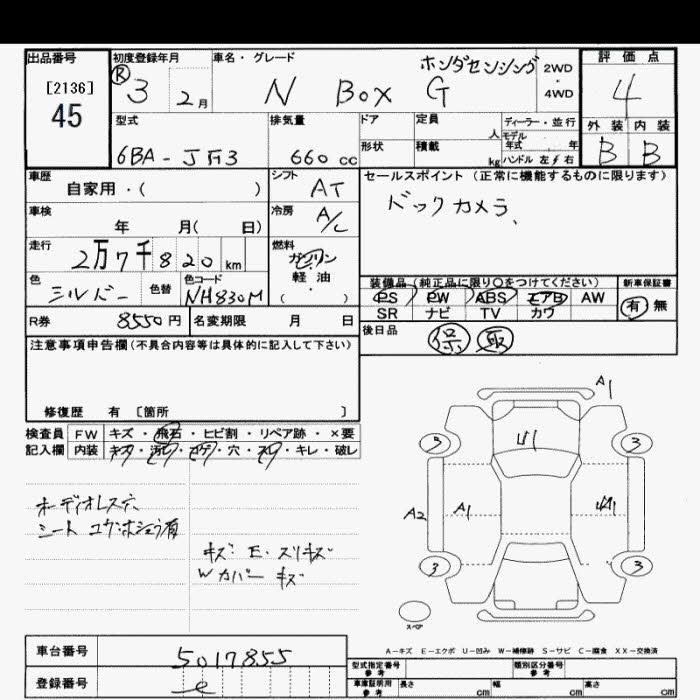 出品番号
[2136]
45
初度登録年月
R 3 2月
車名・グレード
ホンダセンシング
N BOX G
2WD
・
4WD
評価点
4
外装 内装
B B
型式
6BA-JF3
排気量
660 cc
ドア
形状
定員
人
積載
kg
ディーラー・並行
モデル
年式 年
ハンドル 左 右
車歴
自家用・( )
シフト
AT
車検
年 月( 日)
冷房
A/C
走行
2万7千820 km
燃料
ガソリン
・
軽油
( )
色
シルバー
色替
色コード
NH830M
セールスポイント(正常に機能するものに限ります)
バックカメラ、
装備品(純正品に限り○をつけてください)
PS PW ABS エアB AW
SR ナビ TV カワ
新車保証書
有 無
R券
8550円
名変期限 月 日
後日品
保 取
注意事項申告欄(不具合内容等は具体的に記入して下さい)
修復歴 有 [箇所 ]
検査員
記入欄
FW キズ・飛石・ヒビ割・リペア跡・×要
内装 キズ・汚レ・コゲ・穴・スレ・キレ・破レ
オーディオレス穴
シート
キズ E・スリキズ
Wカバー キズ
A1
U1
3 3
A2 A1
3 3
スペア
A-キズ E-エクボ U-凹み W-補修跡 S-サビ C-腐食 XX-交換済
車台番号
5017855
登録番号
型式指定番号
参考
類別区分番号
参考
車庫証明用
参考
長さ cm 幅 cm 高さ cm